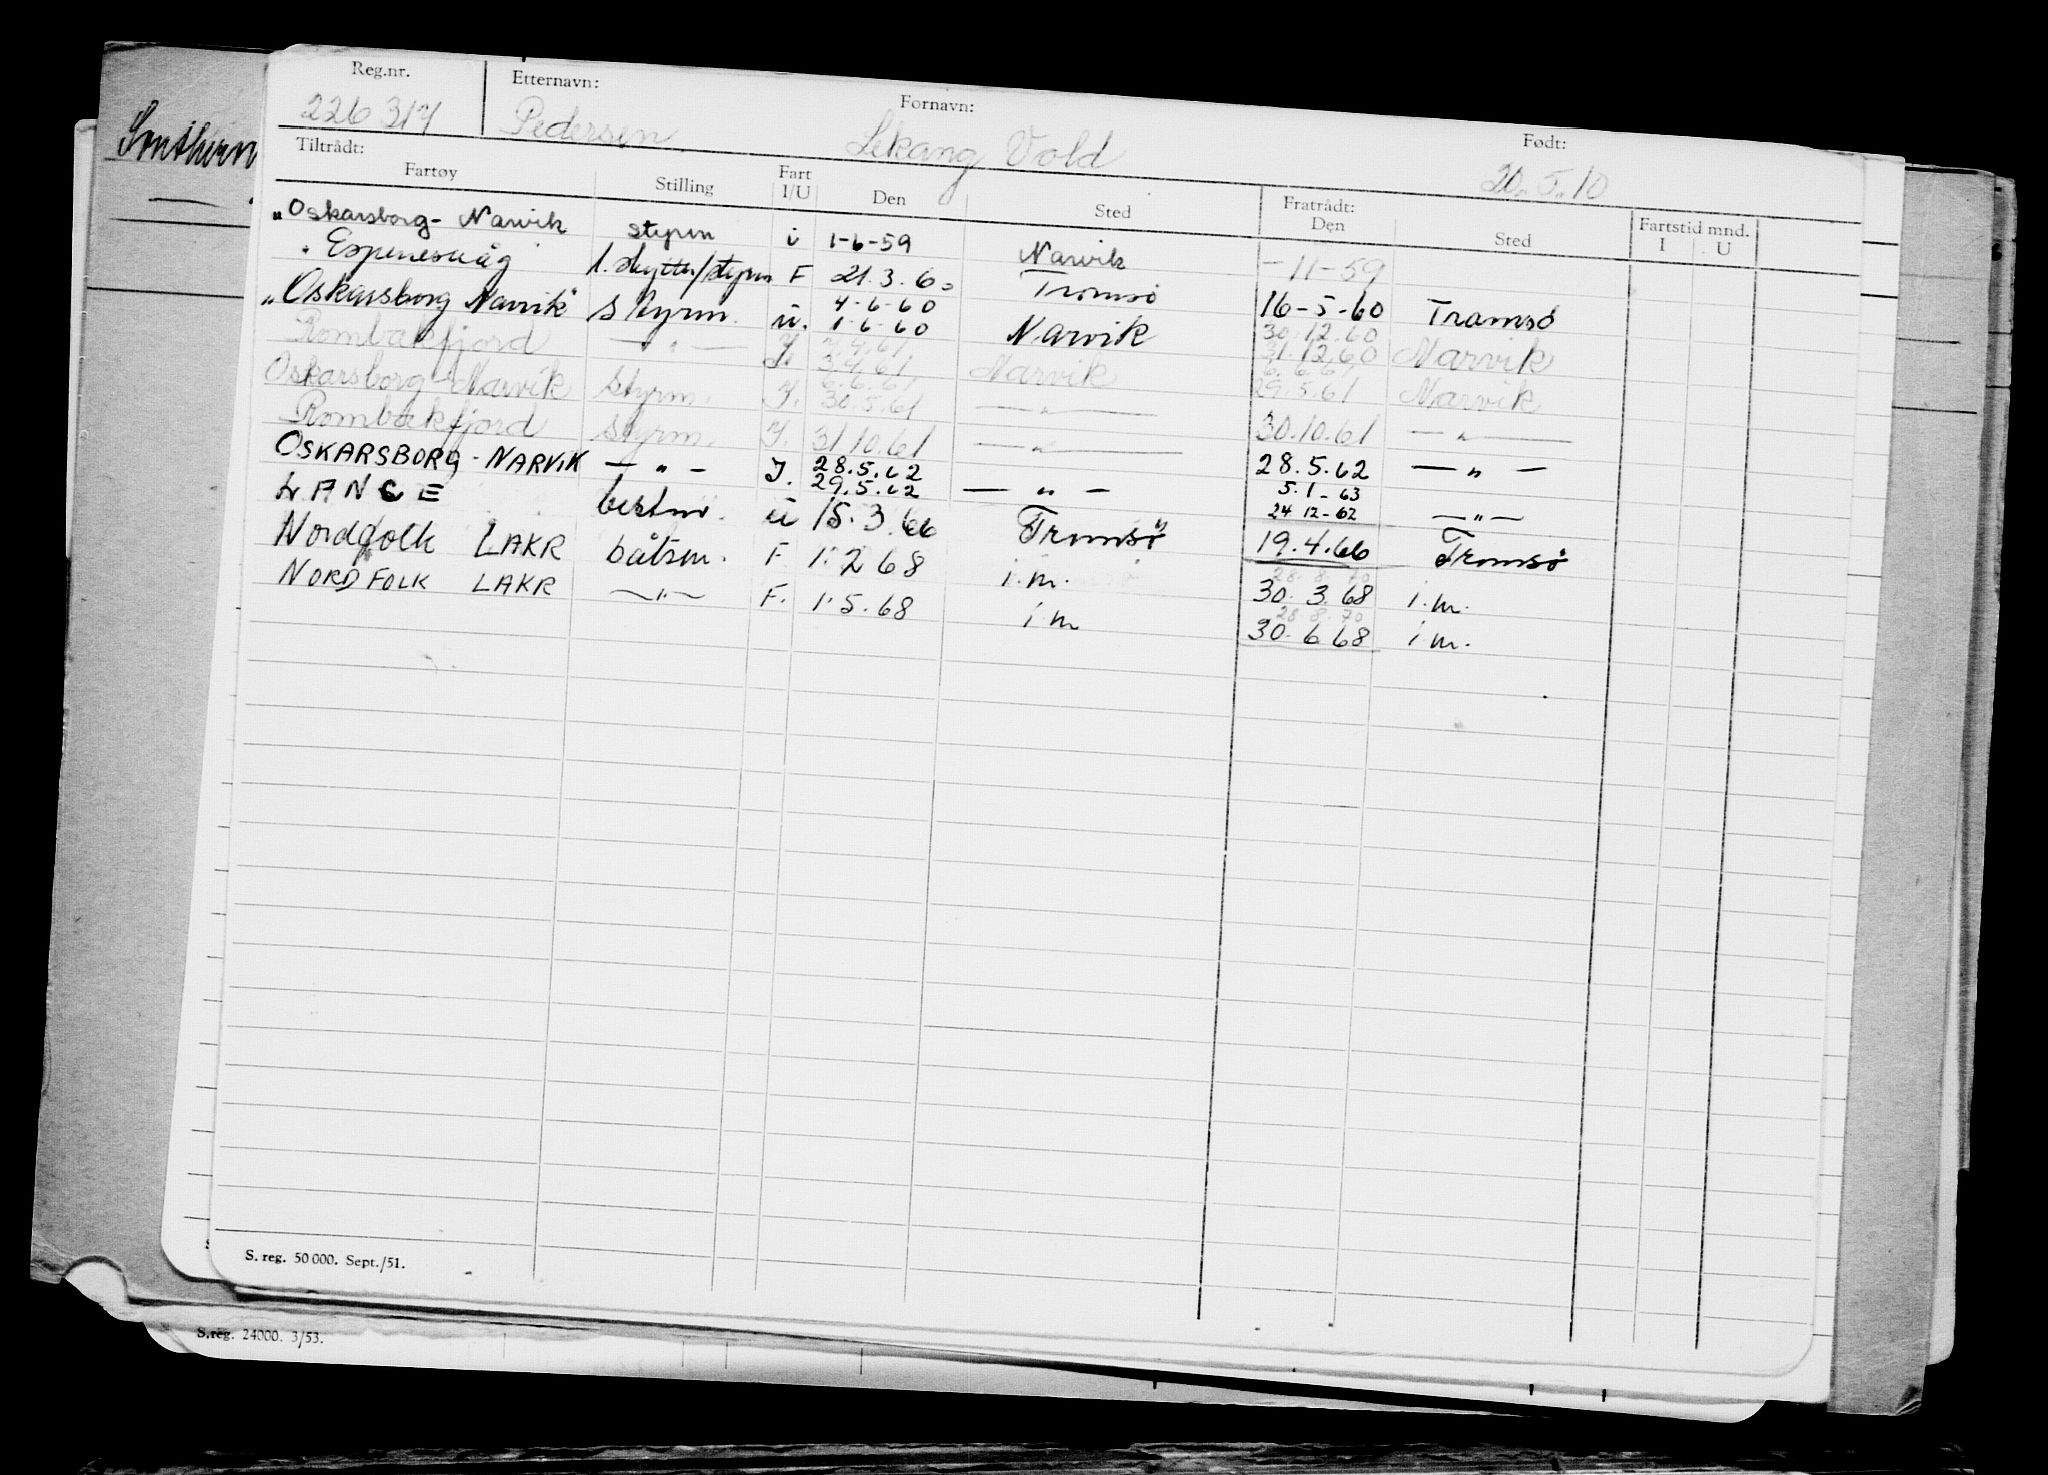 Southern
Reg.nr. Etternavn: Fornavn: Født:
226317 Pedersen Lekang Vold 20.5.10
Tiltrådt: Fratrådt:
Fartøy Stilling Fart I/U Den Sted Den Sted Fartstid mnd. I U
"Oskarsborg- Narvik styrm i 1-6-59 Narvik -11-59
" Espenesvåg 1. skytter/styrm F 21.3.60 Tromsø 16-5-60 Tromsø
"Oskarsborg Narvik" styrm. u. 4-6-60 1-6-60 Narvik 30.12.60 31.12.60 Narvik
Rombakfjord —"— I. 3.4.61 Narvik 6.6.61 29.5.61 Narvik
Oskarsborg-Narvik styrm. I. 6.6.61 30.5.61 —"— 30.10.61 —"—
Rombakfjord styrm. I. 31.10.61 —"— 28.5.62 —"—
OSKARSBORG - NARVIK —"— I. 28.5.62 29.5.62 —"— 5.1-63 24 12-62 —"—
LANCE bestm. u 15.3.66 Tromsø 19.4.66 Tromsø
Nordfolk LAKR båtsm. F 1.2 68 i.m. 28.8.70 30.3.68 i.m.
NORDFOLK LAKR —"— F. 1.5.68 i m 28 8.70 30.6 68 i m.
S. reg. 50 000. Sept./51.
S.reg. 24000. 3/53.